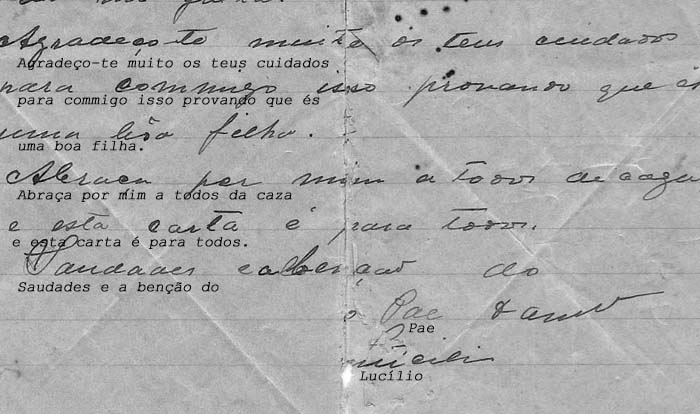 Agradeço-te muito os teus cuidados
Agradeço-te muito os teus cuidados
para commigo isso provando que és
para commigo isso provando que és
uma bôa filha.
uma boa filha.
Abraça por mim a todos de caza
Abraça por mim a todos da caza
e esta carta é para todos.
e esta carta é para todos.
Saudades e a benção do
Saudades e a benção do
Pae
Pae
Lucílio
Lucílio